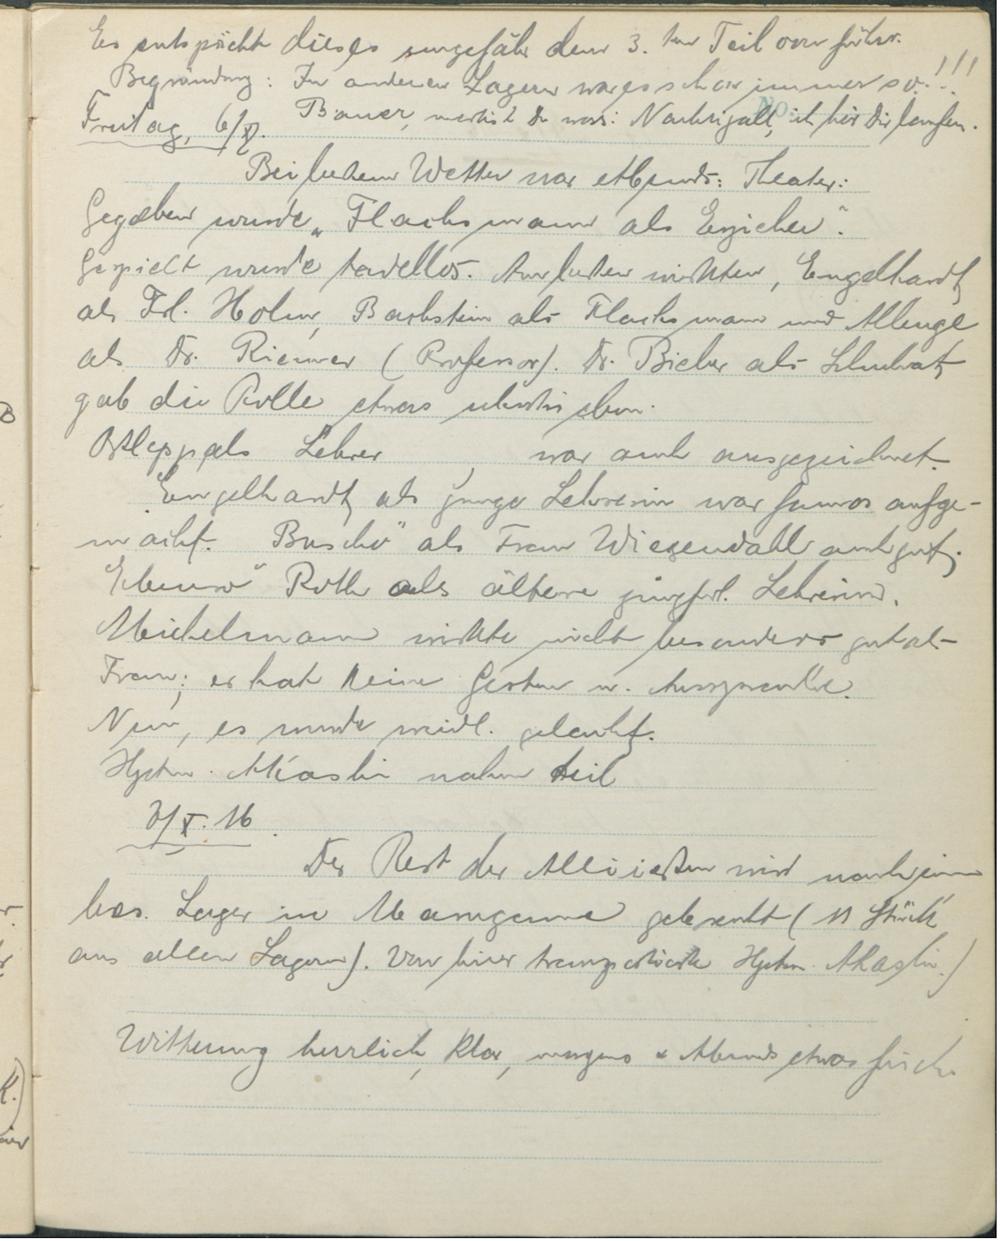 Es entspricht dieses ungefähr dem 3. ten Teil von früher.
Begründung: In anderen Lagern war es schon immer so!!!
Bauer, merkst Du was: Nachtigall, ich hör Dir laufen.
Freitag, 6/X.
Bei Wetter war abends: Theater:
Gegeben wurde „Flachsmann als Erzieher".
Gespielt wurde tadellos. Am besten wirkten, Engelhardt
als Frl. Holm, Bachstein als Flachsmann und
als Dr. Riemer (Professor). Dr. Bieber als Schulrat
gab die Rolle etwas
Ostlepp als Lehrer , war auch ausgezeichnet.
Engelhardt als junge Lehrerin war famos aufge-
macht. „Buscho" als Frau Wiesendahl auch gut;
Roth als ältere jungfrl. Lehrerin.
Meichelmann wirkte nicht besonders gut als
Frau; er hat keine Gesten u. Aussprache.
Nun, es wurde weidl. gelacht.
Hptm. Akashi nahm teil
7/X. 16
Der Rest der Alliierten wird nach einem
bes. Lager in Marugame gebracht (11 Stück
aus allen Lagern). Von hier Hptm. Akashi.)
Witterung herrlich, klar, morgens & Abends etwas frisch.